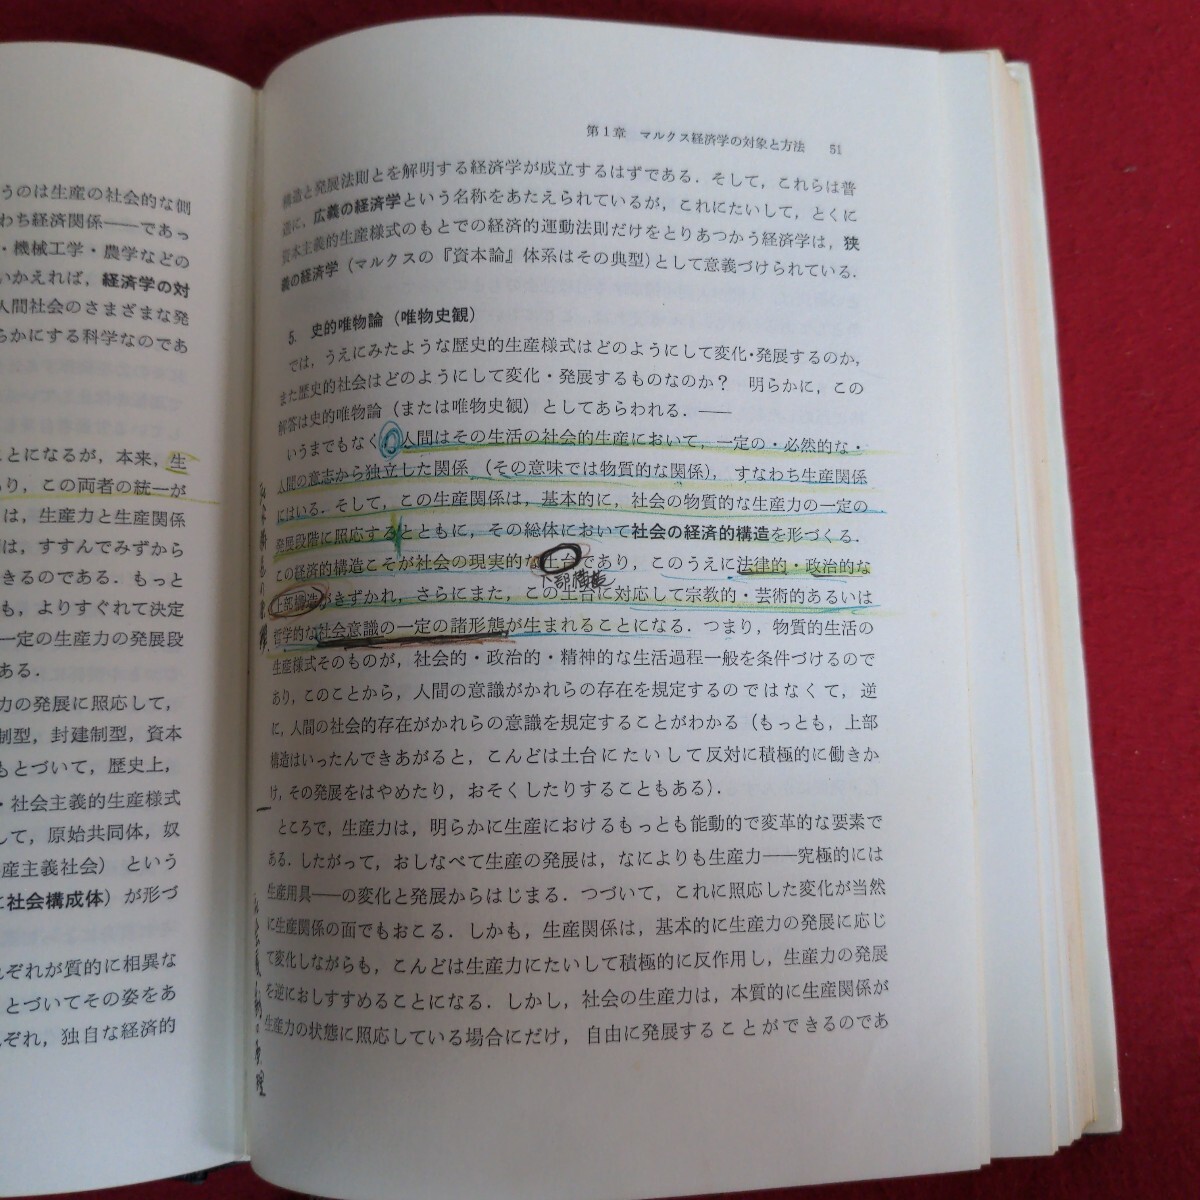 うのは生産の社会的な側
わち経済関係――であっ
・機械工学・農学などの
いかえれば，経済学の対
人間社会のさまざまな発
らかにする科学なのであ
ことになるが，本来，生
り，この両者の統一が
は，生産力と生産関係
は，すすんでみずから
きるのである．もっと
も，よりすぐれて決定
一定の生産力の発展段
ある．
力の発展に照応して，
制型，封建制型，資本
もとづいて，歴史上，
・社会主義的生産様式
して，原始共同体，奴
産主義社会）という
に社会構成体）が形づ
れぞれが質的に相異な
とづいてその姿をあ
ぞれ，独自な経済的
第1章　マルクス経済学の対象と方法　51
構造と発展法則とを解明する経済学が成立するはずである．そして，これらは普
遍に，広義の経済学という名称をあたえられているが，これにたいして，とくに
資本主義的生産様式のもとでの経済的運動法則だけをとりあつかう経済学は，狭
義の経済学（マルクスの『資本論』体系はその典型）として意義づけられている．
5.　史的唯物論（唯物史観）
では，うえにみたような歴史的生産様式はどのようにして変化・発展するのか，
また歴史的社会はどのようにして変化・発展するものなのか？　明らかに，この
解答は史的唯物論（または唯物史観）としてあらわれる．――
いうまでもなく，人間はその生活の社会的生産において，一定の・必然的な・
人間の意志から独立した関係（その意味では物質的な関係），すなわち生産関係
にはいる．そして，この生産関係は，基本的に，社会の物質的な生産力の一定の
発展段階に照応するとともに，その総体において社会の経済的構造を形づくる．
この経済的構造こそが社会の現実的な土台であり，このうえに法律的・政治的な
下部構造
上部構造がきずかれ，さらにまた，この土台に対応して宗教的・芸術的あるいは
哲学的な社会意識の一定の諸形態が生まれることになる．つまり，物質的生活の
生産様式そのものが，社会的・政治的・精神的な生活過程一般を条件づけるので
あり，このことから，人間の意識がかれらの存在を規定するのではなくて，逆
に，人間の社会的存在がかれらの意識を規定することがわかる（もっとも，上部
構造はいったんできあがると，こんどは土台にたいして反対に積極的に働きか
け，その発展をはやめたり，おそくしたりすることもある）．
ところで，生産力は，明らかに生産におけるもっとも能動的で変革的な要素で
ある．したがって，おしなべて生産の発展は，なによりも生産力――究極的には
生産用具――の変化と発展からはじまる．つづいて，これに照応した変化が当然
に生産関係の面でもおこる．しかも，生産関係は，基本的に生産力の発展に応じ
て変化しながらも，こんどは生産力にたいして積極的に反作用し，生産力の発展
を逆におしすすめることになる．しかし，社会の生産力は，本質的に生産関係が
生産力の状態に照応している場合にだけ，自由に発展することができるのであ